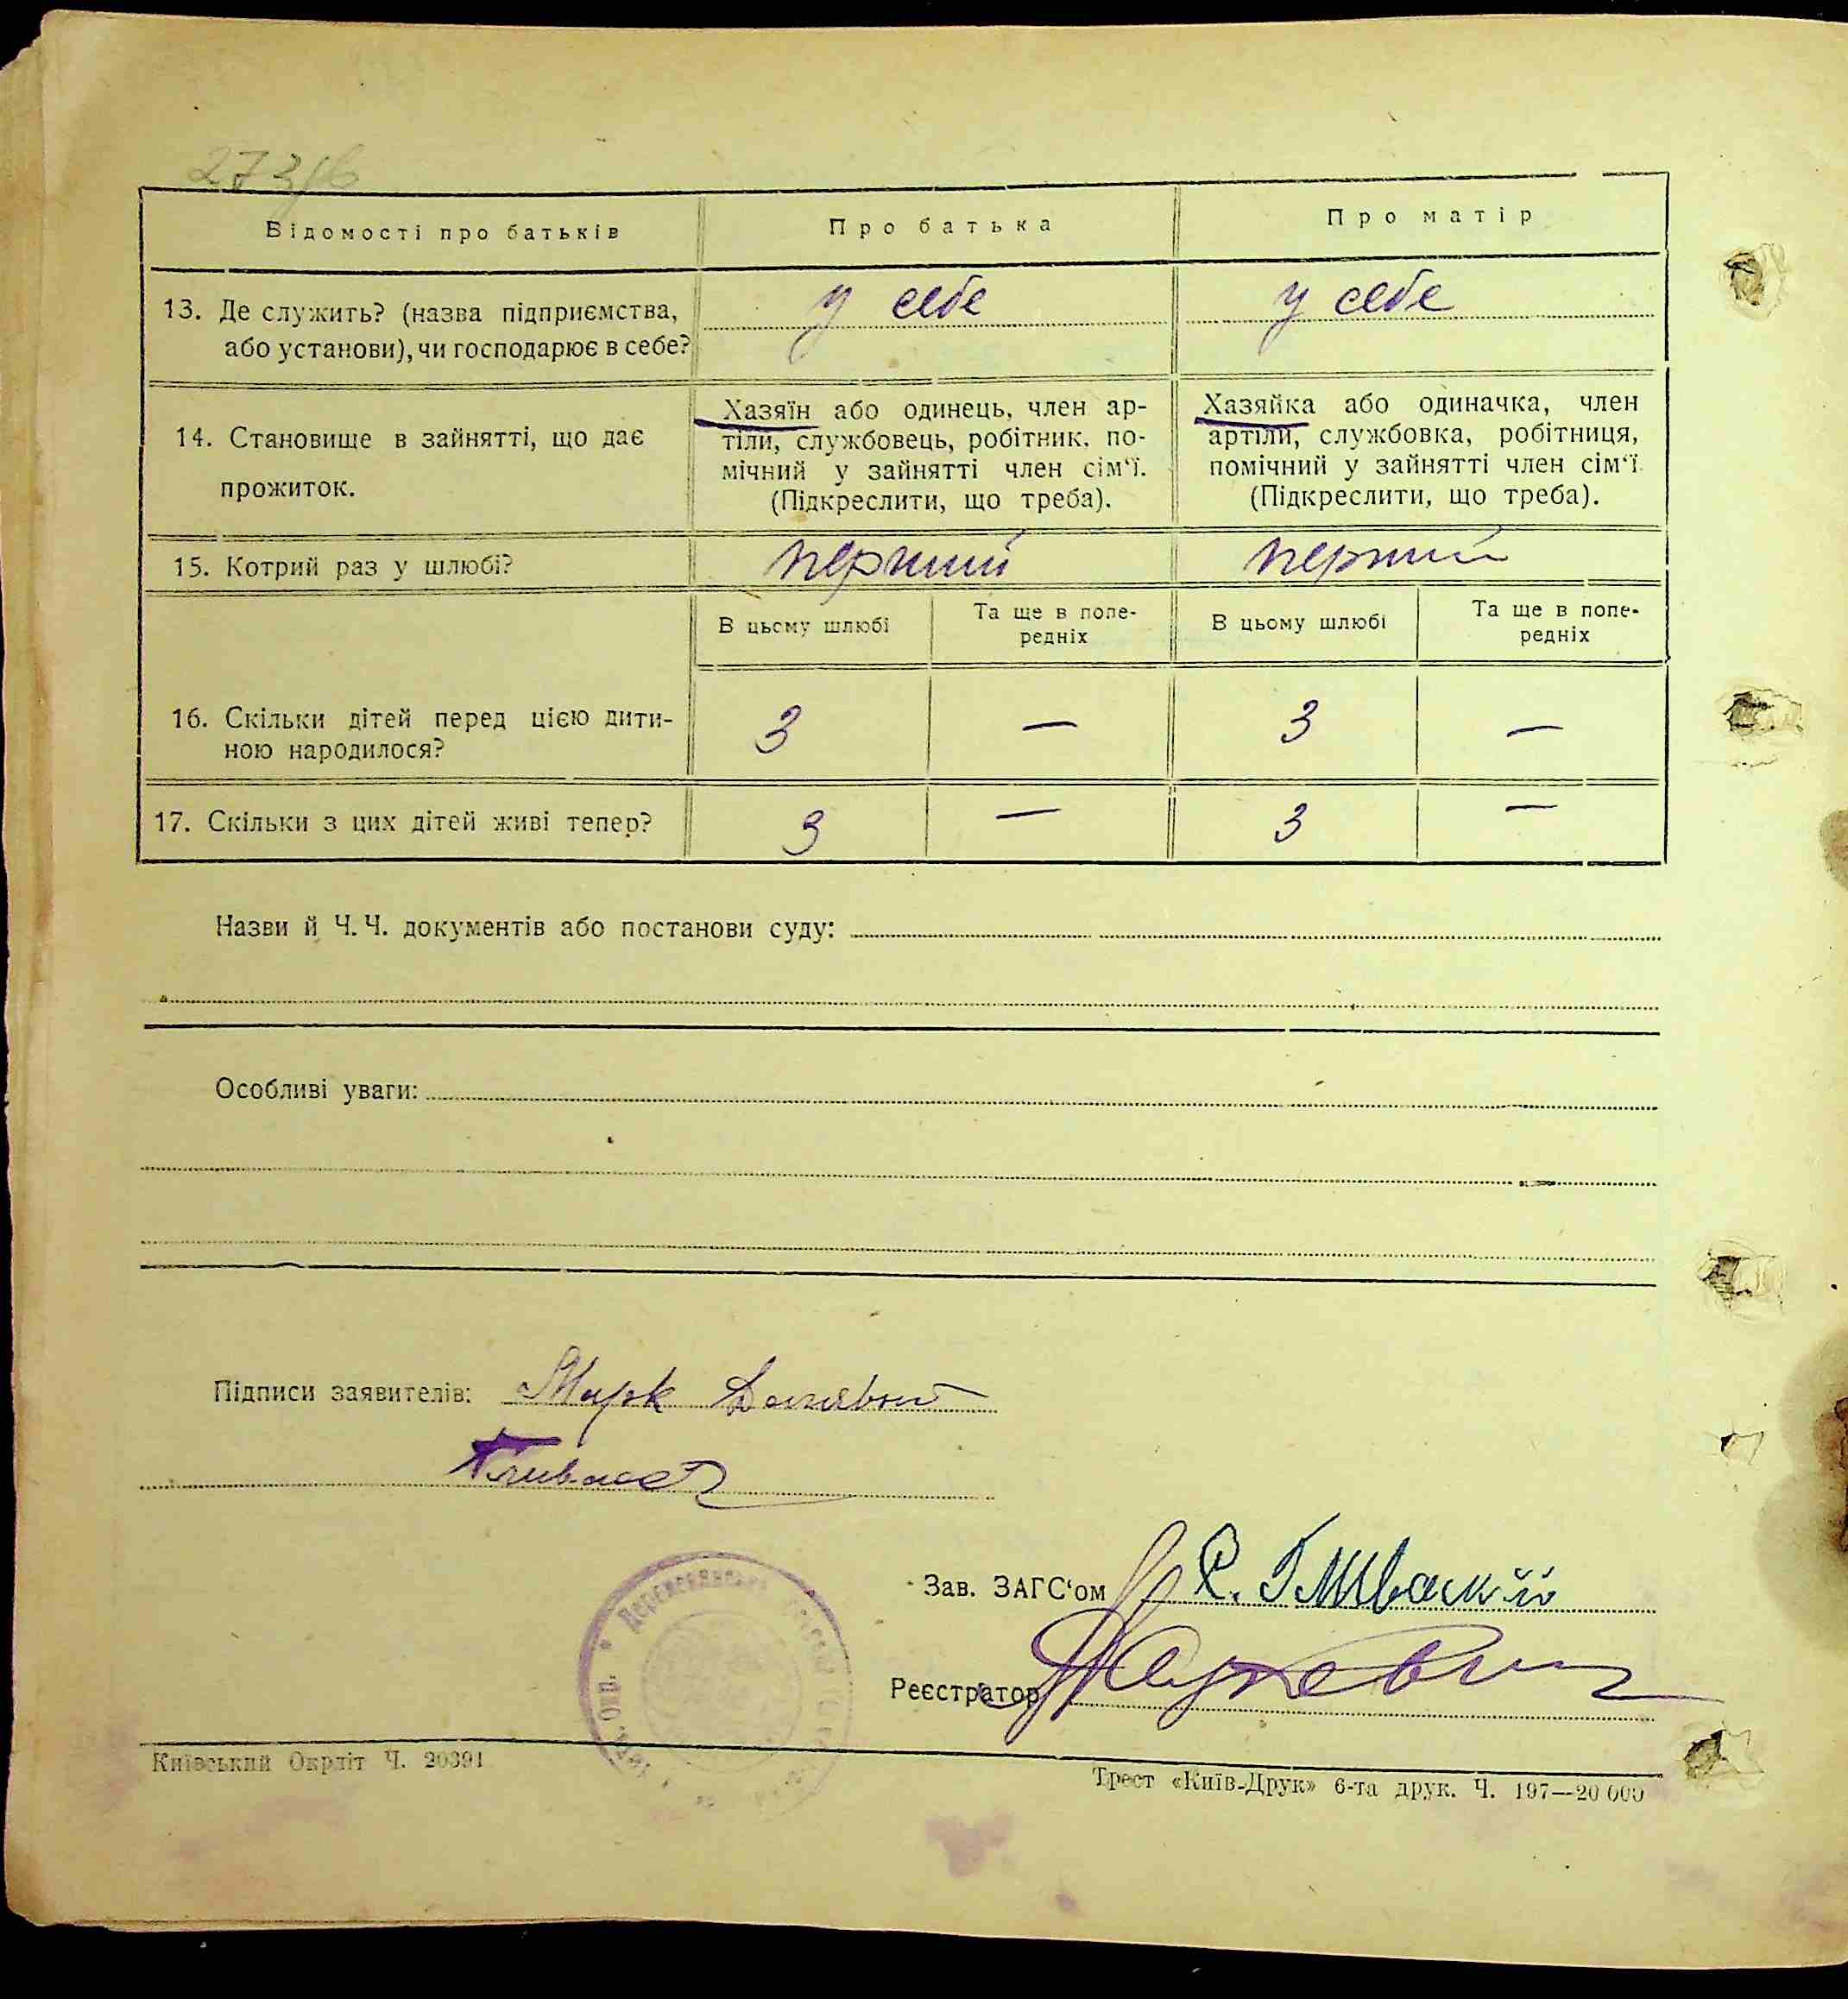 273/б
Відомості про батьків
Про батька
Про матір
13. Де служить? (назва підприємства,
або установи), чи господарює в себе?
у себе
у себе
14. Становище в зайнятті, що дає
прожиток.
Хазяїн або одинець, член ар-
тіли, службовець, робітник, по-
мічний у зайнятті член сім‘ї.
(Підкреслити, що треба).
Хазяйка або одиначка, член
артіли, службовка, робітниця,
помічний у зайнятті член сім‘ї.
(Підкреслити, що треба).
15. Котрий раз у шлюбі?
перший
перший
В цьому шлюбі
Та ще в попе-
редніх
В цьому шлюбі
Та ще в попе-
редніх
16. Скільки дітей перед цією дити-
ною народилося?
3
—
3
—
17. Скільки з цих дітей живі тепер?
3
—
3
—
Назви й Ч. Ч. документів або постанови суду:
Особливі уваги:
Підписи заявителів: Марк
Зав. ЗАГС‘ом
Реєстратор
Окр.
Київський Окрліт Ч. 20391
Трест «Київ-Друк» 6-та друк. Ч. 197—20 000